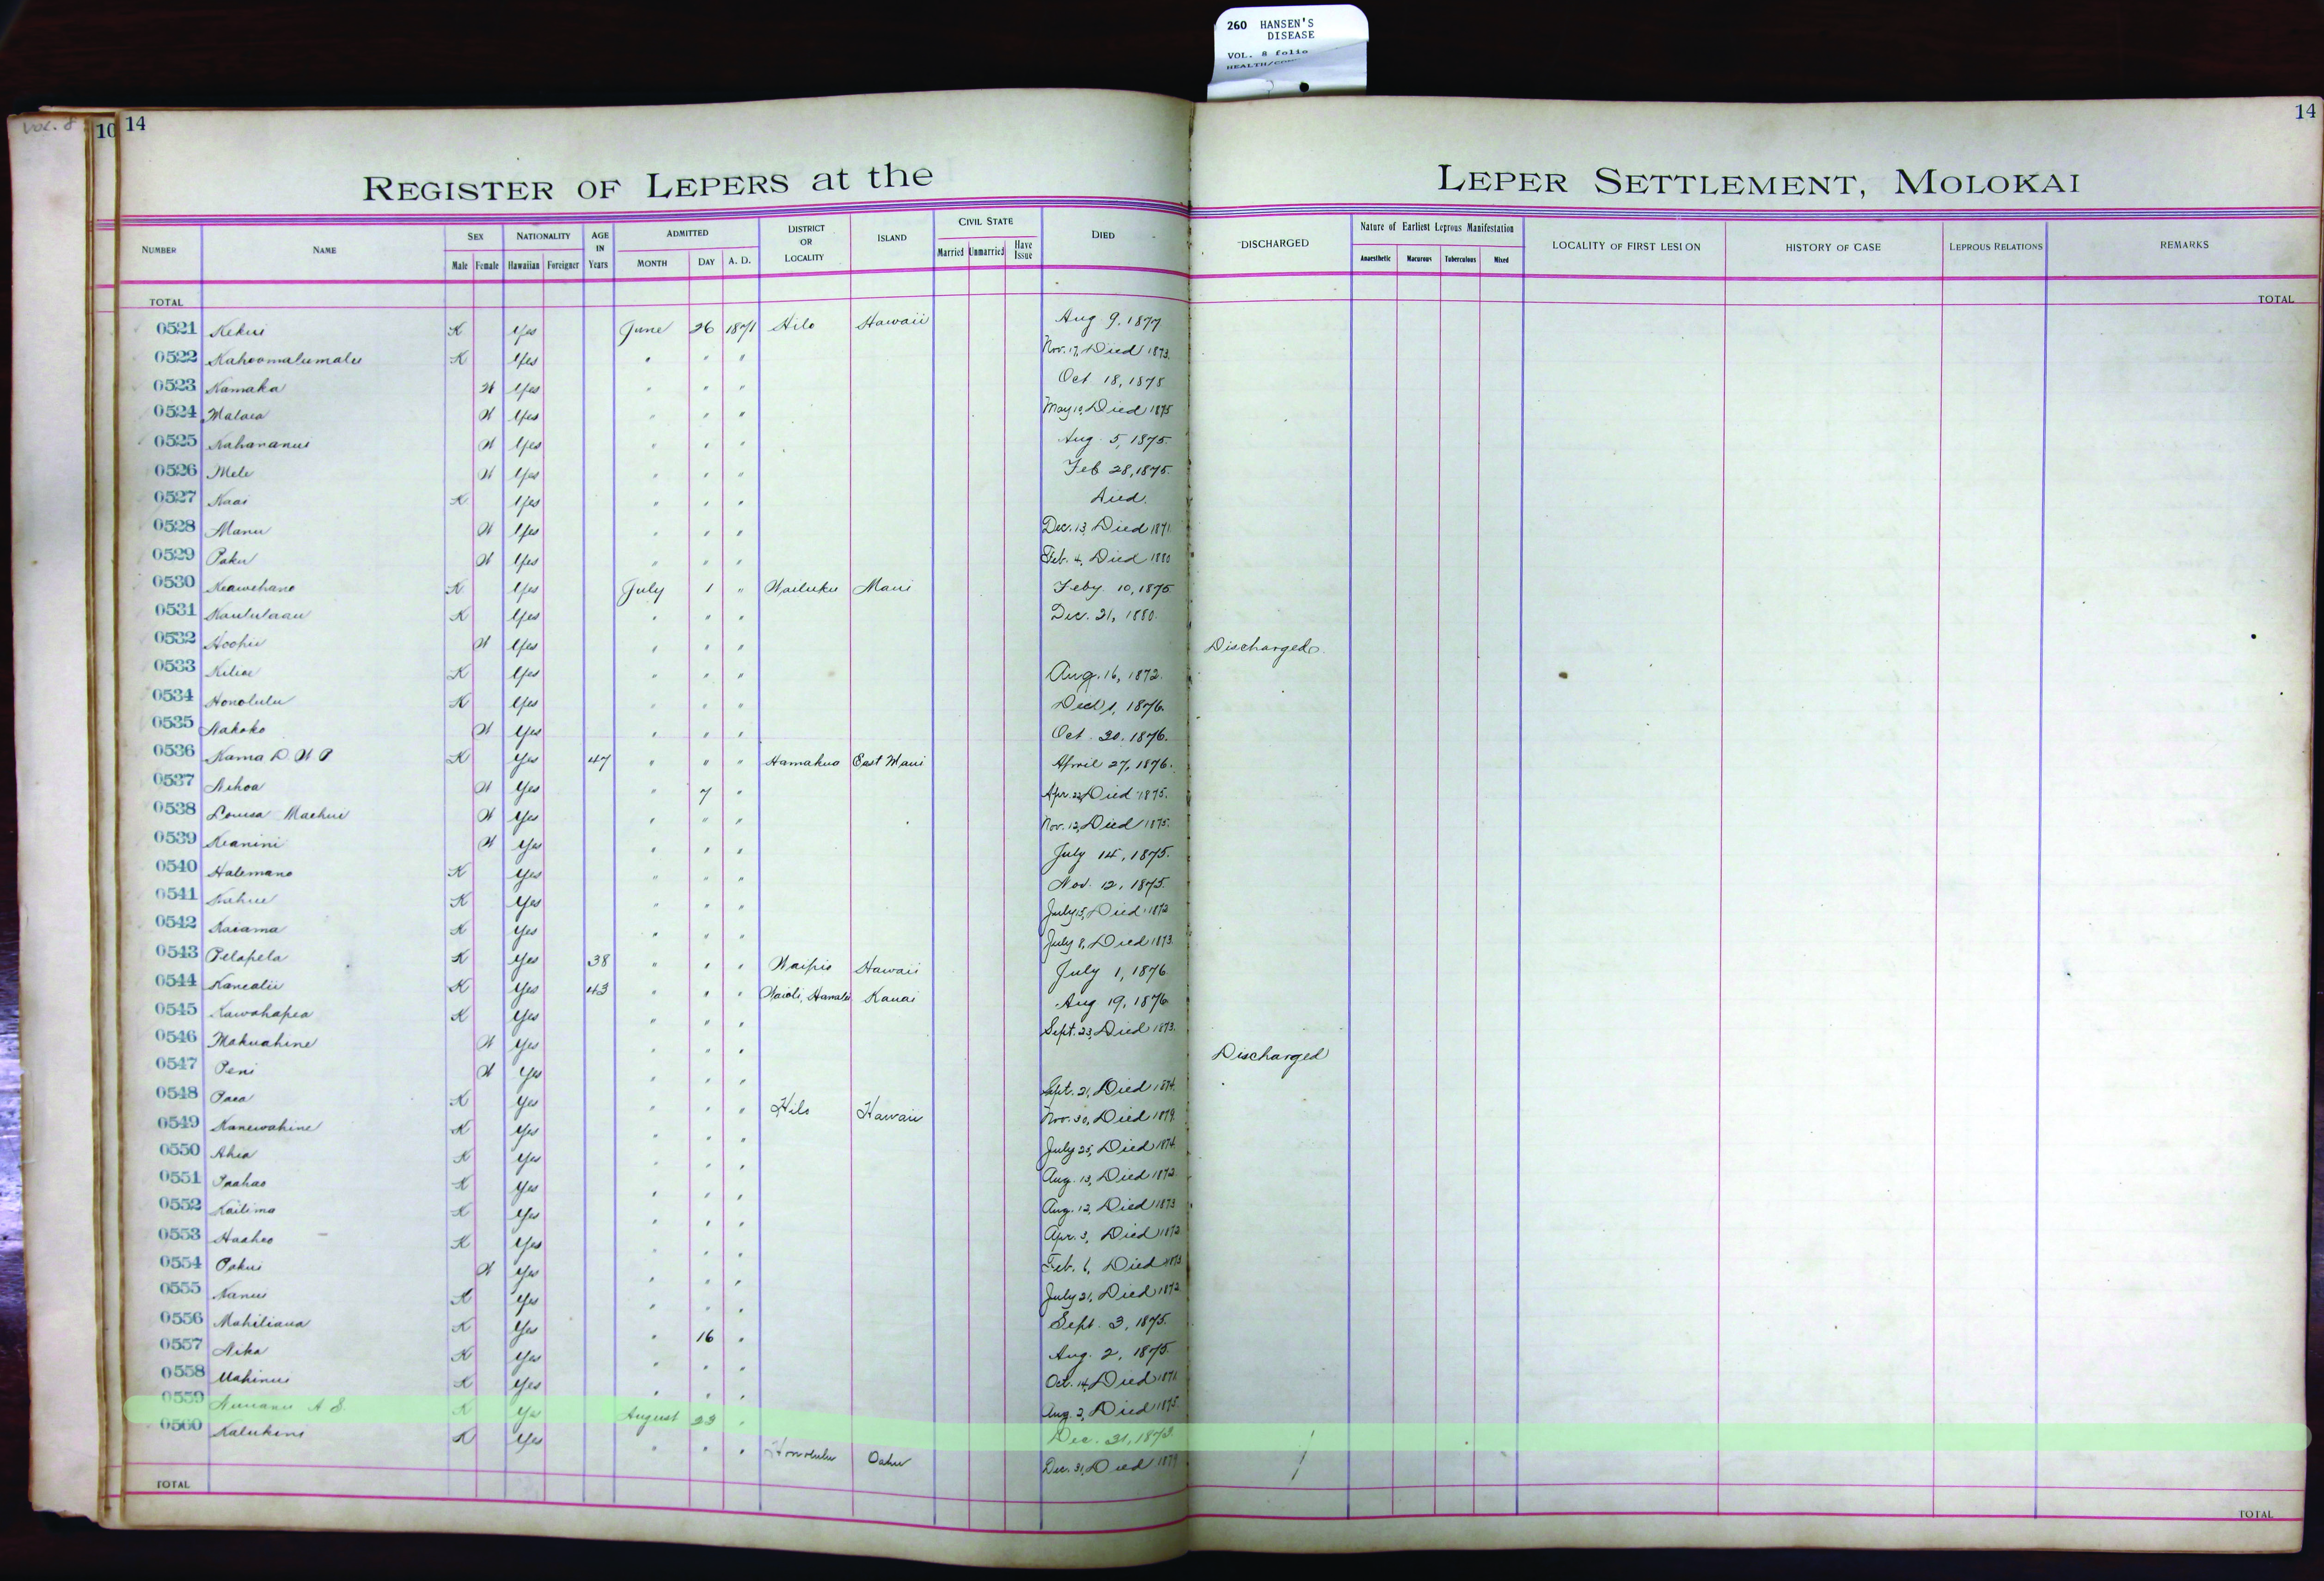 260 HANSEN'S
DISEASE
VOL. 8 folio
VOL. 8
10 14
14
REGISTER OF LEPERS at the LEPER SETTLEMENT, MOLOKAI
NUMBER NAME SEX Male Female NATIONALITY Hawaiian Foreigner AGE IN Years ADMITTED MONTH DAY A. D. DISTRICT OR LOCALITY ISLAND CIVIL STATE Married Unmarried Have Issue DIED DISCHARGED Nature of Earliest Leprous Manifestation Anaesthetic Macurous Tuberculous Mixed LOCALITY OF FIRST LESION HISTORY OF CASE LEPROUS RELATIONS REMARKS
TOTAL TOTAL
0521 Kekui K Yes June 26 1871 Hilo Hawaii Aug 9, 1877
0522 Kahoomalumalu K Yes " " " Nov. 17, Died 1873.
0523 Kamaka W Yes " " " Oct 18, 1875
0524 Malaea W Yes " " " May 10, Died 1875
0525 Kahananui W Yes " " " Aug. 5, 1875.
0526 Mele W Yes " " " Feb 28, 1875.
0527 Kaai K Yes " " " Died.
0528 Manu W Yes " " " Dec. 13, Died 1871
0529 Paku W Yes " " " Feb. 4, Died 1880
0530 Keawehano K Yes July 1 " Wailuku Maui Feby 10, 1875
0531 Kaululaau K Yes " " " Dec. 21, 1880.
0532 Hoohii W Yes " " " Discharged.
0533 Kiliae K Yes " " " Aug. 16, 1872.
0534 Honolulu K Yes " " " 1, 1876.
0535 Nakoko W Yes " " " Oct 20, 1876.
0536 Kama D. W P K Yes 47 " " " Hamakua East Maui April 27, 1876.
0537 Nihoa W Yes " 7 " Apr. 22, Died 1875.
0538 Louisa Maehui W Yes " " " Nov. 12, Died 1875.
0539 Keanini W Yes " " " July 14, 1875.
0540 Halemano K Yes " " " Nov. 12, 1875.
0541 Kahue K Yes " " " July 15, Died 1872
0542 Kaiama K Yes " " " July 8, Died 1873.
0543 Pelapela K Yes 38 " " " Waipio Hawaii July 1, 1876
0544 Kanealii K Yes 43 " " " Waioli, Hanalei Kauai Aug 19, 1876
0545 Kawahapea K Yes " " " Sept. 23, Died 1873.
0546 Makuahine W Yes " " " Discharged
0547 Peni W Yes " " " Sept. 21, Died 1874.
0548 Paea K Yes " " " Hilo Hawaii Nov. 30, Died 1879.
0549 Kanewahine K Yes " " " July 25, Died 1874.
0550 Ahia K Yes " " " Aug. 13, Died 1872.
0551 Paahao K Yes " " " Aug. 12, Died 1873
0552 Kailima K Yes " " " Apr. 3, Died 1872
0553 Haaheo K Yes " " " Feb. 6, Died 1873
0554 Pakui W Yes " " " July 21, Died 1872
0555 Nanui K Yes " " " Sept. 3, 1875.
0556 Mahiliana K Yes " 16 " Aug. 2, 1875.
0557 Nika K Yes " " " Oct. 14, Died 1871.
0558 Mahinui K Yes " " " Aug. 2, Died 1875.
0559 Nuuanu A S. K Yes August 23 " Dec. 31, 1873
0560 Kalukini K Yes " " " Honolulu Oahu Dec. 31, Died 1879
TOTAL TOTAL